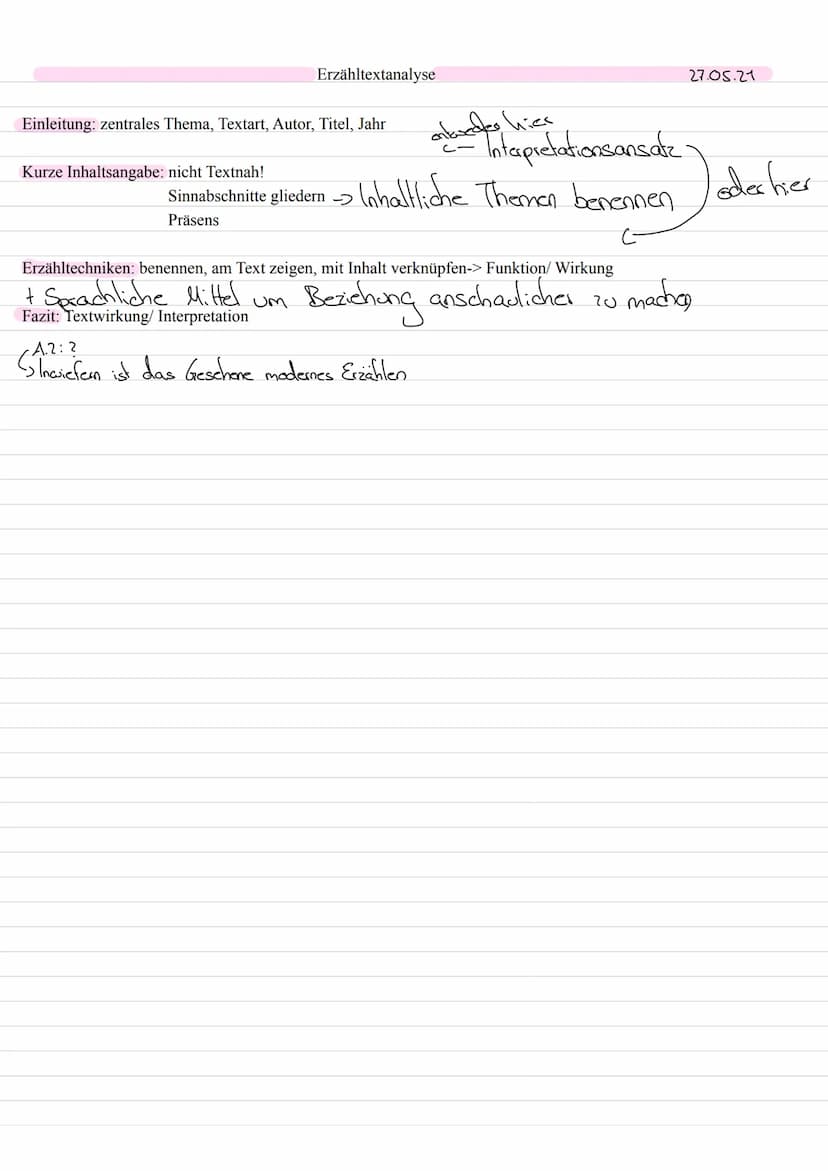 Erzähltextanalyse 27.05.21
Einleitung: zentrales Thema, Textart, Autor, Titel, Jahr
entweder hier
<- Interpretationsansatz
Kurze Inhaltsangabe: nicht Textnah!
Sinnabschnitte gliedern -> Inhaltliche Themen benennen
oder hier
Präsens
Erzähltechniken: benennen, am Text zeigen, mit Inhalt verknüpfen-> Funktion/ Wirkung
+ Sprachliche Mittel um Beziehung anschaulicher zu machen
Fazit: Textwirkung/ Interpretation
A.2: ?
↳ Inwiefern ist das Geschene modernes Erzählen